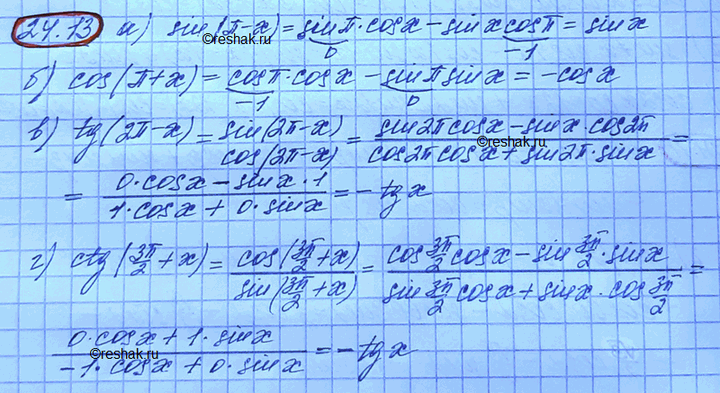 24.13 а) sin(π-x) = sinπ·cosx - sinx cosπ = sinx
0 -1
©reshak.ru
б) cos(π+x) = cosπ·cosx - sinπ sinx = -cosx
-1 0
в) tg(2π-x) = sin(2π-x)/cos(2π-x) = (sin2πcosx - sinx·cos2π)/(cos2πcosx + sin2π·sinx) =
©reshak.ru
= (0·cosx - sinx·1)/(1·cosx + 0·sinx) = -tgx
©reshak.ru
г) ctg(3π/2 + x) = cos(3π/2 + x)/sin(3π/2 + x) = (cos3π/2 cosx - sin3π/2·sinx)/(sin3π/2 cosx + sinx·cos3π/2) =
(0·cosx + 1·sinx)/(-1·cosx + 0·sinx) = -tgx
©reshak.ru
©reshak.ru